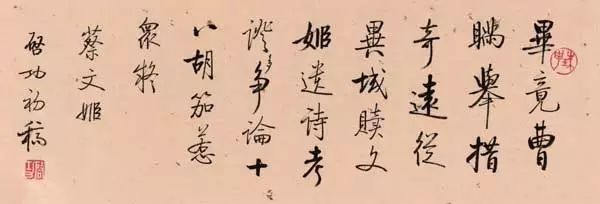 畢竟曹
瞞舉措
奇遠從
異域贖文
姬遺詩考
證爭論十
八胡笳惹
眾疑
蔡文姬
啓功初稿